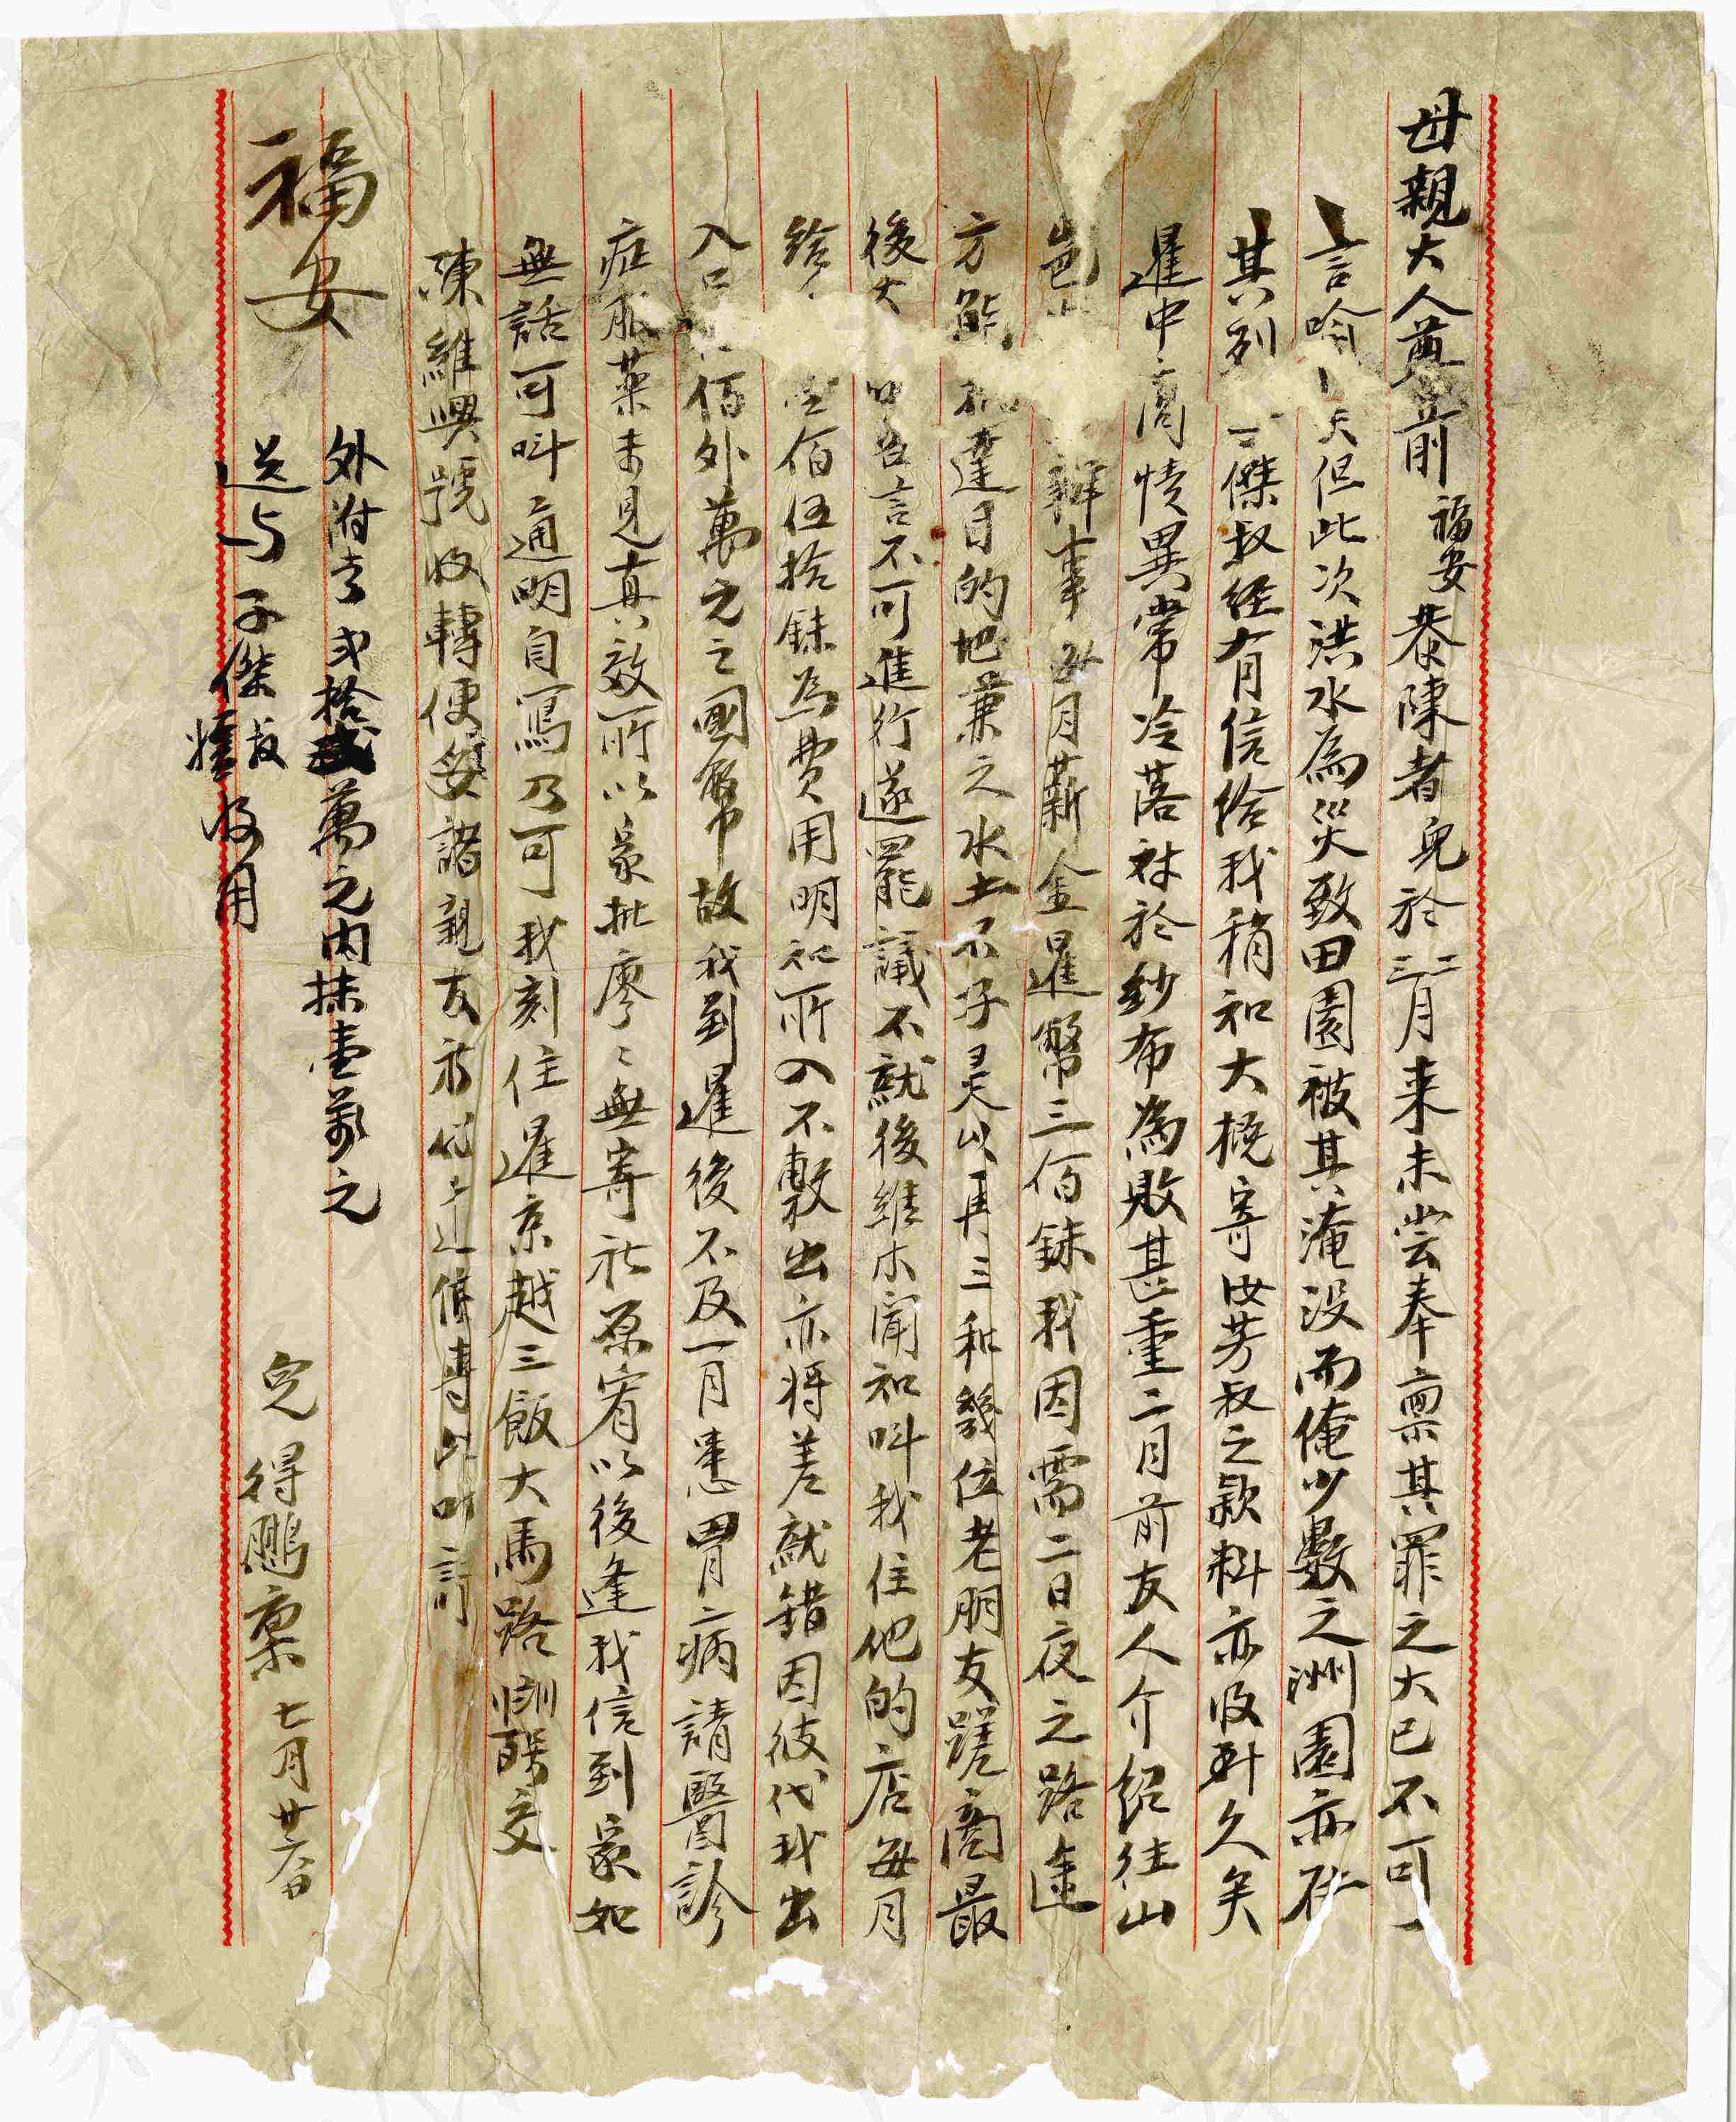 母親大人尊前福安恭陳者兒於二三月來未尝奉稟其罪之大已不可
言喻矣但此次洪水為災致田園被其淹没而俺少數之洲園亦在
其列 傑叔经有信给我稍知大概寄汝芳叔之款料亦收到久矣
暹中商情異常冷落对於紗布為敗甚重二月前友人介绍往山
邑 辦事每月薪金暹幣三佰銖我因需二日夜之路途
方能 達目的地兼之水土不好是以再三和幾位老朋友蹉商最
後大 口吾言不可進行遂罷議不就後維木闻知叫我住他的店每月
给 壹佰伍拾銖為費用明知所入不敷出亦将差就錯因彼代我出
入口 佰外萬元之國幣故我到暹後不及一月患胃病請醫診
症服薬未見真效所以家批廖々無寄祈原宥以後逢我信到家如
無話可叫通明自寫乃可我刻住暹京越三飯大馬路 交
陳維興號收轉便妥諸親友祈代 此叩請
福安
外附去弍拾萬元内抹壹萬元
送与子傑叔 收用
兒得鵬稟七月廿六日